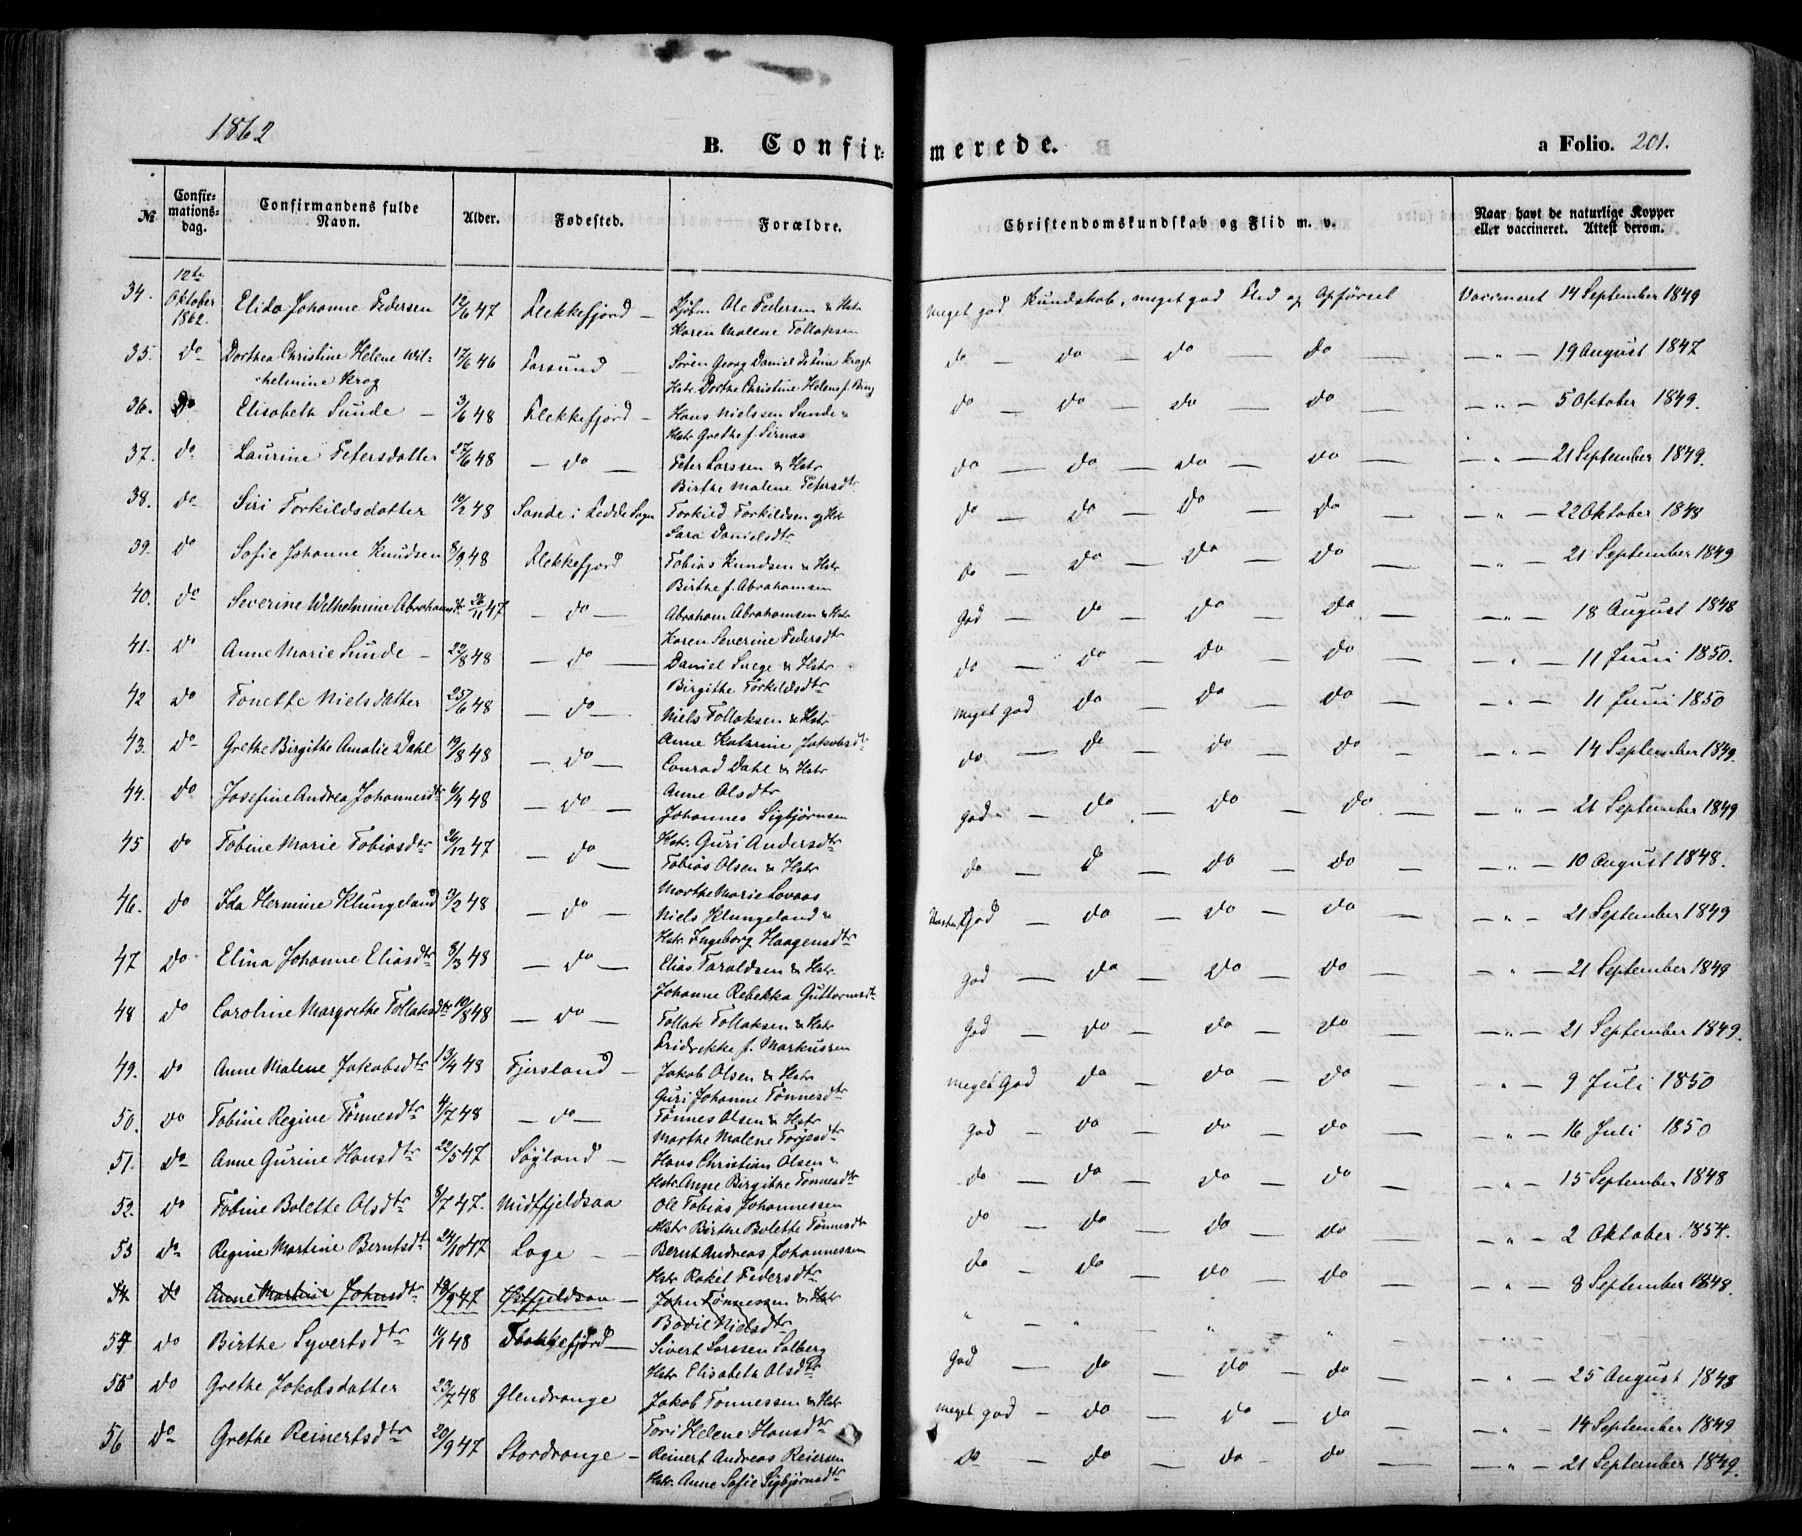 1862
B. Confirmerede.
a Folio. 201.
№ Confirmationsdag. Confirmandens fulde Navn. Alder. Fødested. Forældre. Christendomskundskab og Flid m. v. Naar havt de naturlige Kopper eller vaccineret. Attest derom.
34. 12te Oktober 1862. Elida Johanne Pedersen 12/6 47 Flekkefjord — Ole Pedersen & Hstr Karen Malene Tollaksen Meget god Kundskab, meget god Flid og Opførsel Vaccineret 14 September 1849
35. do Dorthea Christine Helene Wilhelmine Krog 17/6 46 Farsund — Sören Georg Daniel Krogh Hstr. Dorthe Christine Helene f. Bing do — do — do — do — — " — 19 August 1847
36. do Elisabeth Sunde — 3/6 48 Flekkefjord — Hans Nielssen Sunde & Hstr Grethe f. Sirnas do — do — do — do — — " — 5 Oktober 1849.
37. do Laurine Petersdatter 27/6 48 — do — Peter Larssen & Hstr Birthe Malene Petersdtr do — do — do — do — — " — 21 September 1849.
38. do Siri Torkildsdatter 12/2 48 Sande i Fedde Sogn Torkild Torkildsen og Hstr Sara Danielsdtr do — do — do — do — — " — 22 Oktober 1848
39. do Sofie Johanne Knudsen 8/9 48 Flekkefjord Tobias Knudsen & Hstr Birthe f. Abrahamsen do — do — do — do — — " — 21 September 1849
40. do Severine Wilhelmine Abrahamsdtr. 26/11 47 — do — Abraham Abrahamsen & Hstr Karen Severine Pedersdtr God — do — do — do — — " — 18 August 1848
41. do Anne Marie Sunde — 22/8 48 — do — Daniel & Hstr Birgithe Torkildsdtr do — do — do — do — — " — 11 Juni 1850.
42 do Tonette Nielsdatter 25/6 48 — do — Niels Tollaksen & Hstr Anne Katrine Jakobsdtr Meget god do — do — do — — " — 11 Juni 1850
43. do Grethe Birgithe Amalie Dahl 19/8 48 — do — Conrad Dahl & Hstr Anne Olsdtr do — do — do — do — — " — 14 September 1849
44. do Josefine Andrea Johannesdtr 48 — do — Johannes Sigbjørnsen Hstr. Guri Andersdtr god — do — do — do — " — 21 September 1849
45 do Tobine Marie Tobiasdtr 26/12 47 — do — Tobias Olsen & Hstr Marthe Marie Lovaas do — do — do — do — — " — 10 August 1848.
46. do Ida Hermine Klungeland 48 — do — Niels Klungeland & Hstr. Ingeborg Haagensdtr God — do — do — do — — " — 21 September 1849
47 do Elina Johanne Eliasdtr 8/3 48 — do — Elias Taraldsen & Hstr. Johanne Rebekka Guttormsdtr god — do — do — do — — " — 21 September 1849
48 do Caroline Margrethe Tollaksdtr 19/8 48 — do — Tollak Tollaksen & Hstr Fridrikke f. Markussen God — do — do — do — — " — 21 September 1849.
49. do Anne Malene Jakobsdtr 48 Fjersland — Jakob Olsen & Hstr Guri Johanne Tönnesdtr Meget God do — do — do — " — 9 Juli 1850
50. do Tobine Regine Tönnesdtr 4/7 48 — do — Tönnes Olsen & Hstr Marthe Malene Torjesdtr God — do — do — do — " — 16 Juli 1850
51. do Anne Gurine Hansdtr 22/5 47 Söyland — Hans Christian Olsen & Hstr. Anne Birgithe Tönnesdtr do — do — do — do — " — 15 September 1848
52. do Tobine Bolette Olsdtr 8/7 47. Midtfjeldsaa Ole Tobias Johannessen Hstr Birthe Bolette Tönnesdtr do — do — do — do — " — 2 Oktober 1854.
53 do Regine Martine Berntsdtr 24/10 47 Loge — Bernt Andreas Johannessen Hstr Rakel Pedersdtr do — do — do — do — " — 8 September 1848.
54. do Anne Martine Johnsdtr 18/9 47 — John Tönnessen & Hstr Bodil Nielsdtr " " " "
54 do Birthe Syvertsdtr 48 Flekkefjord — Sivert Larssen Solberg Hstr Elisabeth Olsdtr God — do — do — do — " — 25 August 1848
55 do Grethe Jakobsdatter 23/7 48 Glendrange Jakob Tönnessen & Hstr Tori Helene Hansdtr meget god — do — do — do — " — 14 September 1849
56 do Grethe Reinertsdtr 20/9 47 Stordrange — Reinert Andreas Reiersen Hstr. Anne Sofie Sigbjörnsdtr do — do — do — do — — " — 21 September 1849.